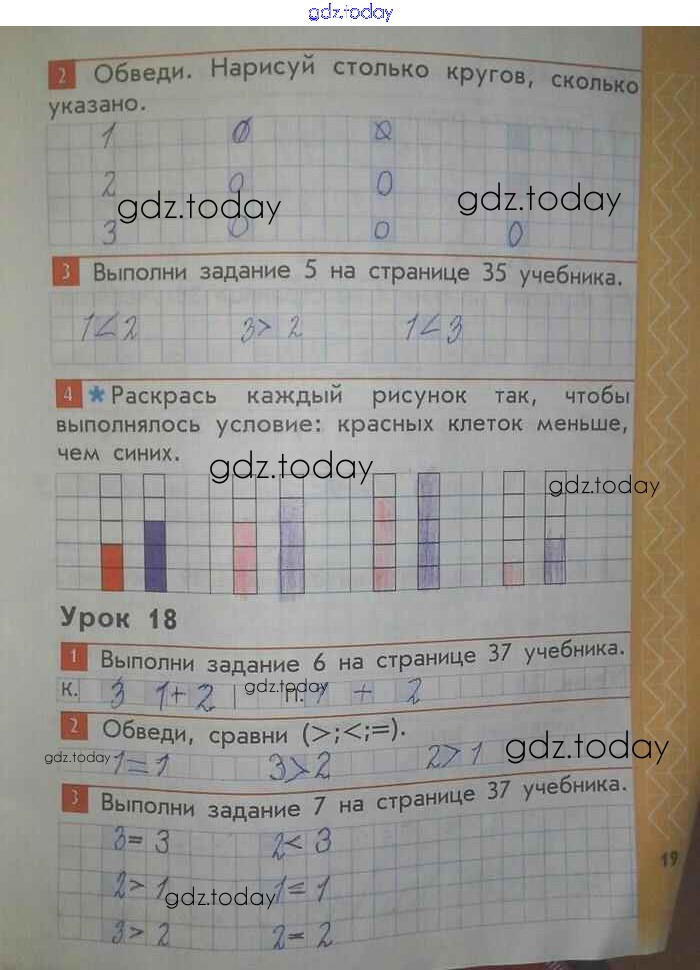 gdz.today
2 Обведи. Нарисуй столько кругов, сколько
указано.
1 0 0
2 0 0
gdz.today gdz.today
3 0 0 0
3 Выполни задание 5 на странице 35 учебника.
1<2 3>2 1<3
4 * Раскрась каждый рисунок так, чтобы
выполнялось условие: красных клеток меньше,
чем синих.
gdz.today gdz.today
Урок 18
1 Выполни задание 6 на странице 37 учебника.
К. 3 1+2 gdz.today П. 1 + 2
2 Обведи, сравни (>;<;=).
gdz.today 1=1 3>2 2>1 gdz.today
3 Выполни задание 7 на странице 37 учебника.
3=3 2<3
2>1 gdz.today 1=1
3>2 2=2
19